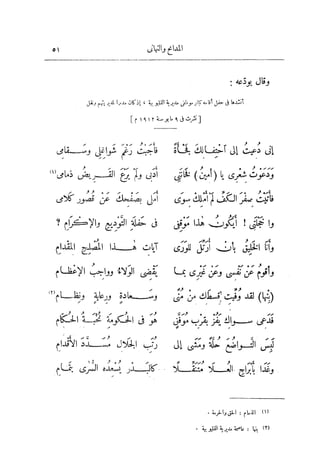 المدائح والتهانى
٥١
وقال يودّعه :
أنشدها فى حفل أقامه كبار موظفى مديرية القليوبية ، إذ كان مديرا لمديريتهم ونقل
[ نشرت فى ٩ مايو سنة ١٩١٢ م ]
إنى دُعيتُ إلى احتفالك فجأةً فأجبتُ رغم شواغلى وسقامى
ودعوتُ شعرى يا (أمينُ) فخاننى أدبى ولم يرعَ القريضُ ذمامى (١)
فأتيتُ صفرَ الكفّ لم أملك سوى أملٍ بصفحك عن قصور كلامى
واخجلتى ! أيكون هذا موقفى فى حفلة التوديع والإكرام ؟
وأنا الخليقُ بأن أرتّل للورى آيات هذا المصلح المقدام
وأقومَ عن نفسى وعن غيرى بما يقضى الولاءُ وواجبُ الإعظام
(بنها) لقد وُفّيتِ قسطك من منًى وسعادةٍ ورعايةٍ ونظام (٢)
فدعى سواك يفز بقرب موفّقٍ هو فى الحكومة نخبة الحكّام
لبس التواضعَ حلّةً ومشى إلى رتب الجلال مسدّد الأقدام
وغدا بأبراج العلا متنقّلا كالبدر يسعده السُّرى بتمام
(١) الذمام : الحق والحرمة .
(٢) بنها : عاصمة مديرية القليوبية .